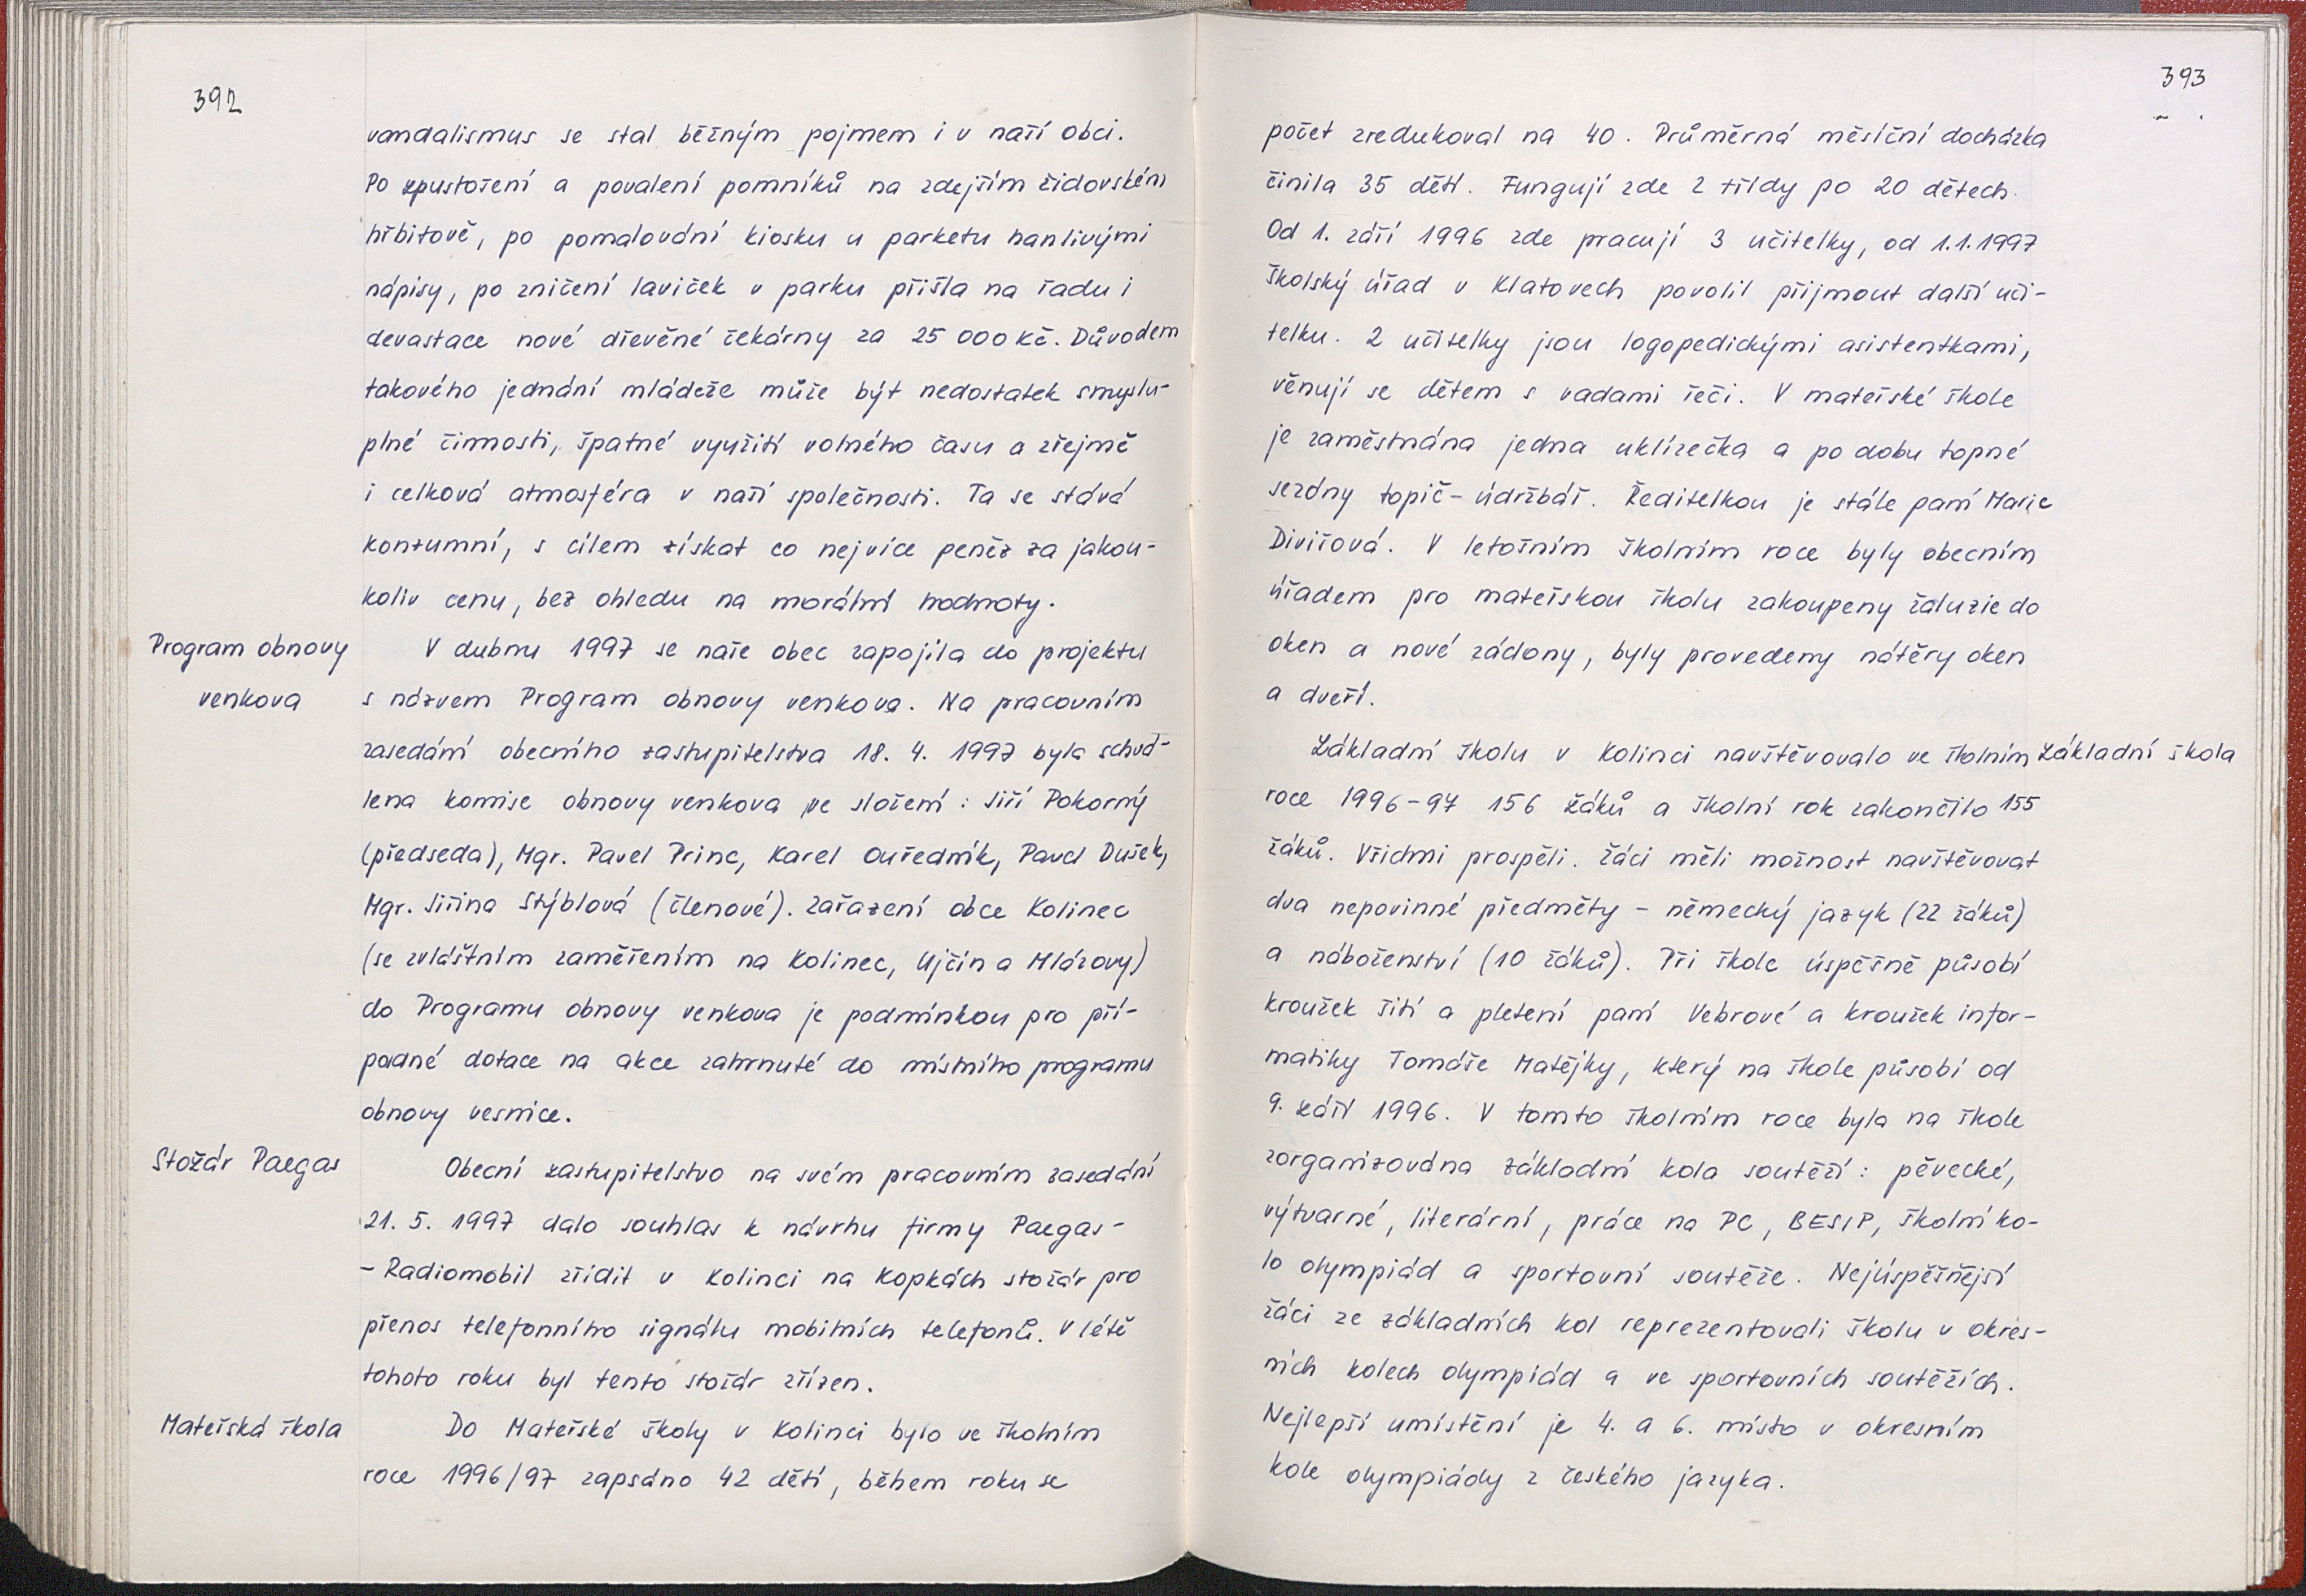 392
vandalismus se stal běžným pojmem i v naší obci.
Po zpustošení a povalení pomníků na zdejším židovském
hřbitově, po pomalování kiosku u parketu hanlivými
nápisy, po zničení laviček v parku přišla na řadu i
devastace nové dřevěné čekárny za 25 000 Kč. Důvodem
takového jednání mládeže může být nedostatek smyslu-
plné činnosti, špatné využití volného času a zřejmě
i celková atmosféra v naší společnosti. Ta se stává
konzumní, s cílem získat co nejvíce peněz za jakou-
koliv cenu, bez ohledu na morální hodnoty.
Program obnovy
venkova
V dubnu 1997 se naše obec zapojila do projektu
s názvem Program obnovy venkova. Na pracovním
zasedání obecního zastupitelstva 18. 4. 1997 byla schvá-
lena komise obnovy venkova ve složení: Jiří Pokorný
(předseda), Mgr. Pavel Princ, Karel Ouředník, Pavel Dušek,
Mgr. Jiřina Stýblová (členové). Zařazení obce Kolinec
(se zvláštním zaměřením na Kolinec, Ujčín a Mlázovy)
do Programu obnovy venkova je podmínkou pro pří-
padné dotace na akce zahrnuté do místního programu
obnovy vesnice.
Stožár Paegas
Obecní zastupitelstvo na svém pracovním zasedání
21. 5. 1997 dalo souhlas k návrhu firmy Paegas-
- Radiomobil zřídit v Kolinci na Kopkách stožár pro
přenos telefonního signálu mobilních telefonů. V létě
tohoto roku byl tento stožár zřízen.
Mateřská škola
Do Mateřské školy v Kolinci bylo ve školním
roce 1996/97 zapsáno 42 dětí, během roku se
393
počet zredukoval na 40. Průměrná měsíční docházka
činila 35 dětí. Fungují zde 2 třídy po 20 dětech.
Od 1. září 1996 zde pracují 3 učitelky, od 1.1.1997
školský úřad v Klatovech povolil přijmout další uči-
telku. 2 učitelky jsou logopedickými asistentkami,
věnují se dětem s vadami řeči. V mateřské škole
je zaměstnána jedna uklízečka a po dobu topné
sezóny topič - údržbář. Ředitelkou je stále paní Marie
Divišová. V letošním školním roce byly obecním
úřadem pro mateřskou školu zakoupeny žaluzie do
oken a nové záclony, byly provedeny nátěry oken
a dveří.
Základní školu v Kolinci navštěvovalo ve školním
Základní škola
roce 1996-97 156 žáků a školní rok zakončilo 155
žáků. Všichni prospěli. Žáci měli možnost navštěvovat
dva nepovinné předměty - německý jazyk (22 žáků)
a náboženství (10 žáků). Při škole úspěšně působí
kroužek šití a pletení paní Vebrové a kroužek infor-
matiky Tomáše Matějky, který na škole působí od
9. září 1996. V tomto školním roce byla na škole
zorganizována základní kola soutěží: pěvecké,
výtvarné, literární, práce na PC, BESIP, školní ko-
lo olympiád a sportovní soutěže. Nejúspěšnější
žáci ze základních kol reprezentovali školu v okres-
ních kolech olympiád a ve sportovních soutěžích.
Nejlepší umístění je 4. a 6. místo v okresním
kole olympiády z českého jazyka.